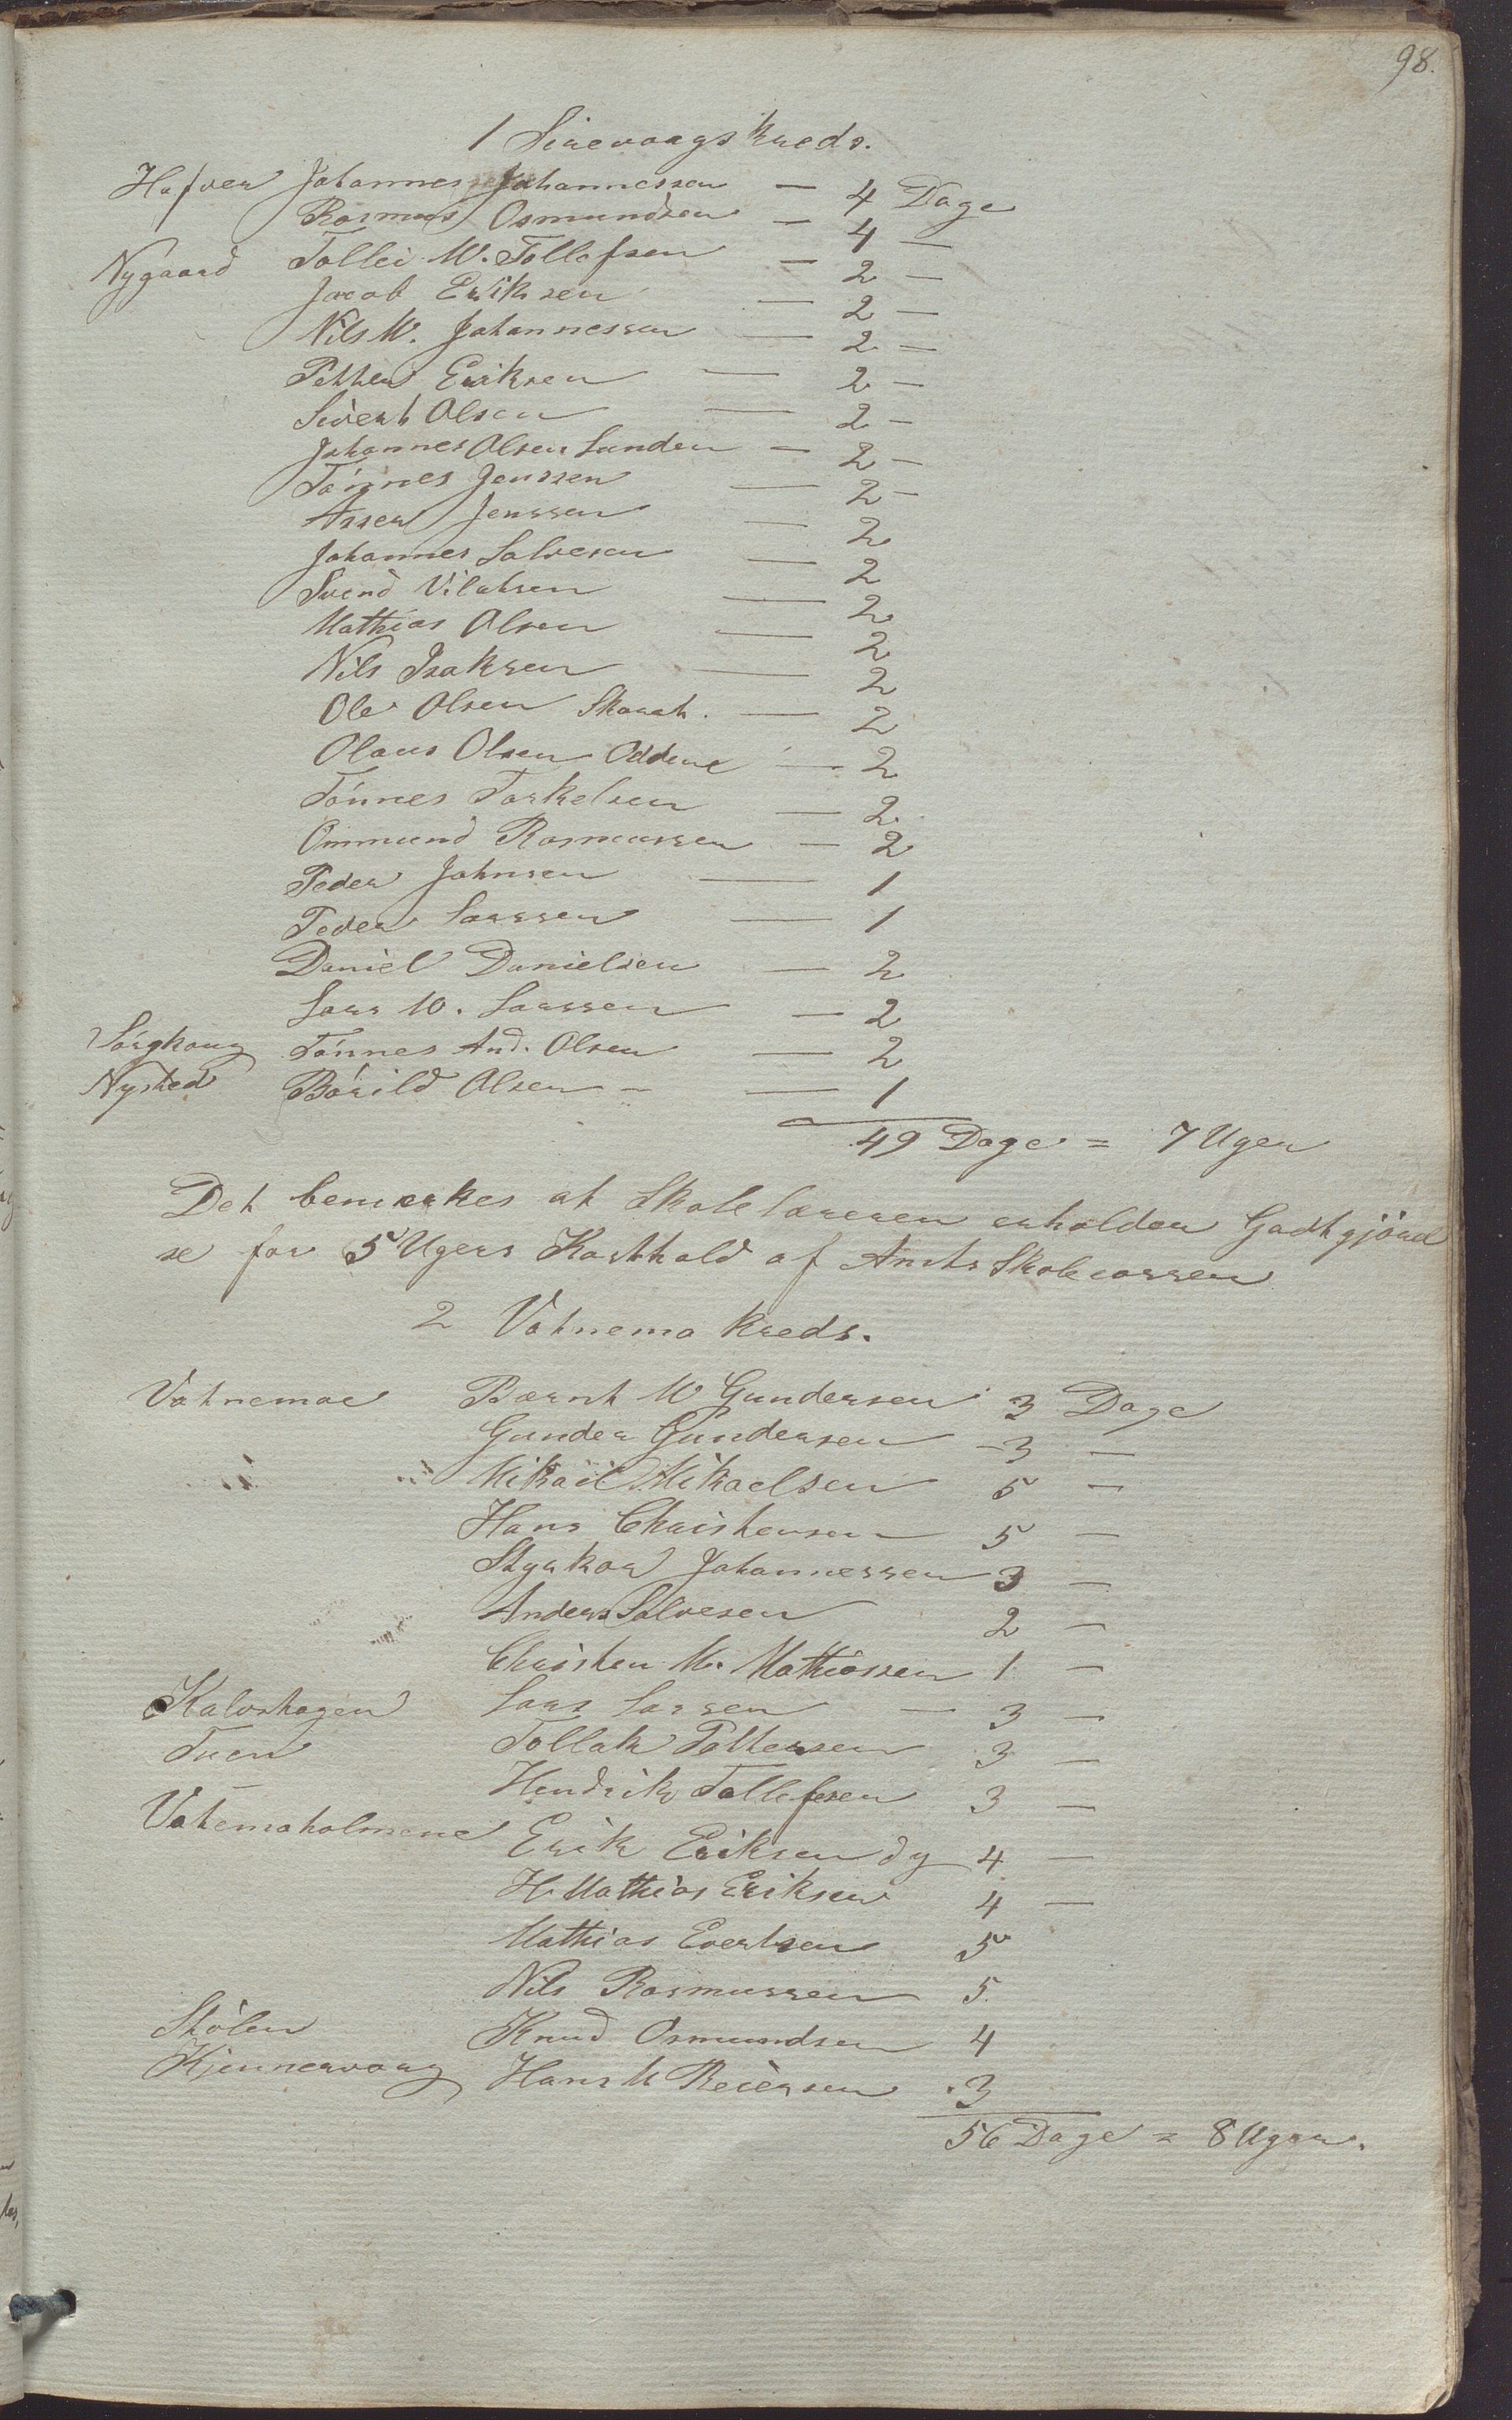 98.
1 Sirevaags kreds.
Hafver Johannes Johannessen — 4 Dage
Rasmus Osmundsen — 4 —
Nygaard Tollei W. Tollefsen — 2 —
Jacob Eriksen — 2 —
Nils W. Johannessen — 2 —
Petter Eriksen — 2 —
Sivert Olsen — 2 —
Johannes Olsen Sanden — 2 —
Tønnes Jenssen — 2 —
Asser Jenssen — 2
Johannes Salvesen — 2
Svend Vilatsen — 2
Mathias Olsen — 2
Nils Isaksen — 2
Ole Olsen Skaret. — 2
Olaus Olsen Oddene — 2
Tønnes Torkelsen — 2
Ommund Rasmussen — 2
Peder Johnsen — 1
Peder Larssen — 1
Daniel Danielsen — 2
Lars W. Larssen — 2
Sørghoug Tønnes And. Olsen — 2
Nysted Bårild Olsen — — 1
49 Dage = 7 Uger
Det bemærkes at Skolelæreren erholder Godtgjørel
se for 5 Ugers Kosthold af Amts Skolecassen
2 Vatnemo Kreds.
Vatnemoe Bernt W Gundersen 3 Dage
Gunder Gundersen — 3 —
" " Mikael Mikaelsen 5 —
Hans Christensen 5 —
Styrkor Johannessen 3 —
Anders Salvesen 2 —
Christen M. Mathiassen 1 —
Kalvshagen Lars Larsen — 3 —
Tuen Tollak Pettersen 3 —
Hendrik Tollefsen 3 —
Vatnemoholmene Erik Eriksen dy 4 —
H. Mathias Eriksen 4 —
Mathias Evertsen 5
Nils Rasmussen 5
Stølen Knud Osmundsen 4
Kjennervaag Hans M Reiersen 3
56 Dage = 8 Uger.